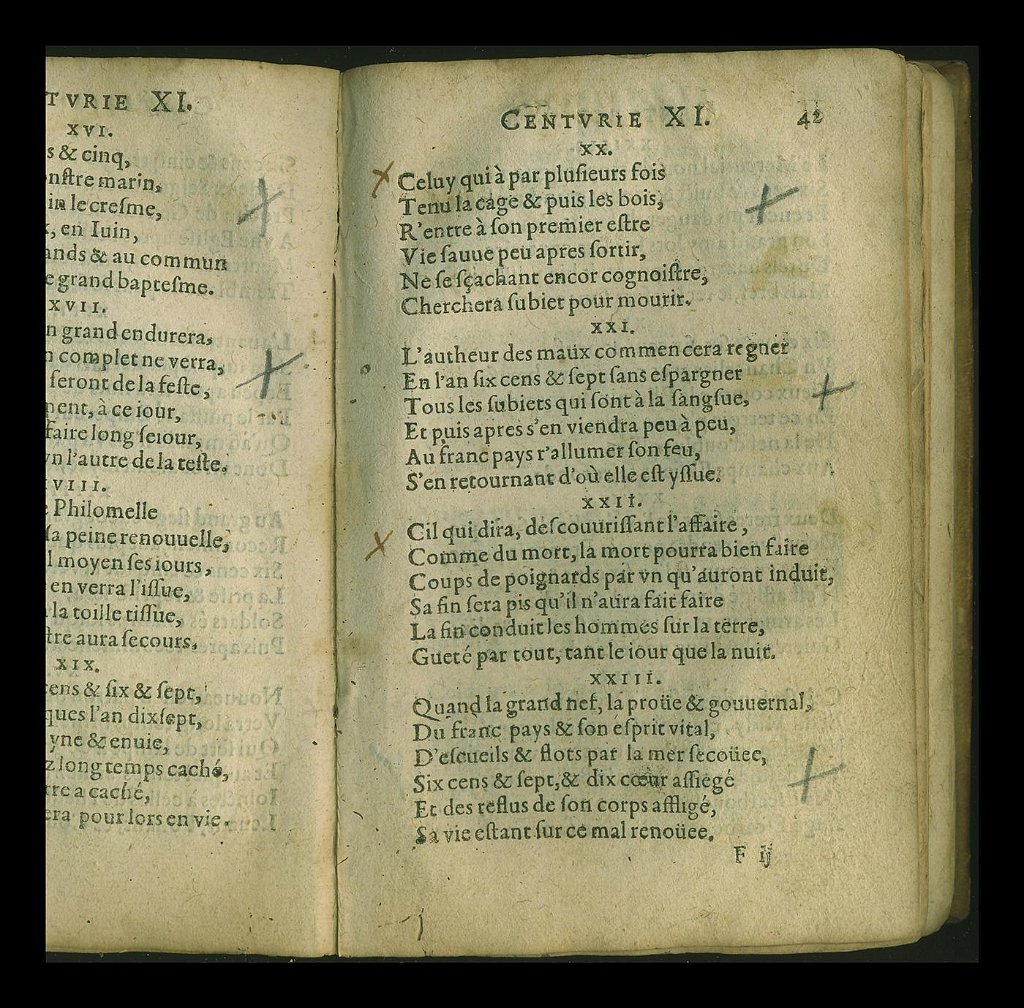 TVRIE XI.
XVI.
s & cinq,
nſtre marin,
in le creſme,
, en Iuin,
ands & au commun
e grand bapteſme.
XVII.
n grand endurera,
n complet ne verra,
ſeront de la feſte,
nent, à ce iour,
faire long ſeiour,
vn l'autre de la teſte.
VIII.
Philomelle
ſa peine renouuelle,
l moyen ſes iours,
en verra l'iſſue,
la toille tiſſue,
tre aura ſecours.
XIX.
cens & ſix & ſept,
ques l'an dixſept,
yne & enuie,
z long temps caché,
tre a caché,
era pour lors en vie.
CENTVRIE XI. 42
XX.
Celuy qui à par pluſieurs fois
Tenu la cage & puis les bois,
R'entre à ſon premier eſtre
Vie ſauue peu apres ſortir,
Ne ſe ſçachant encor cognoiſtre,
Cherchera ſubiet pour mourir.
XXI.
L'autheur des maux commencera regner
En l'an ſix cens & ſept ſans eſpargner
Tous les ſubiets qui ſont à la ſangſue,
Et puis apres s'en viendra peu à peu,
Au franc pays r'allumer ſon feu,
S'en retournant d'où elle eſt yſſue.
XXII.
Cil qui dira, deſcouuriſſant l'affaire,
Comme du mort, la mort pourra bien faire
Coups de poignards par vn qu'auront induit,
Sa fin ſera pis qu'il n'aura fait faire
La fin conduit les hommes ſur la terre,
Gueté par tout, tant le iour que la nuit.
XXIII.
Quand la grand nef, la proüe & gouuernal,
Du franc pays & ſon eſprit vital,
D'eſcueils & flots par la mer ſecoüee,
Six cens & ſept, & dix cœur aſſiegé
Et des reflus de ſon corps affligé,
Sa vie eſtant ſur ce mal renoüee.
F ij